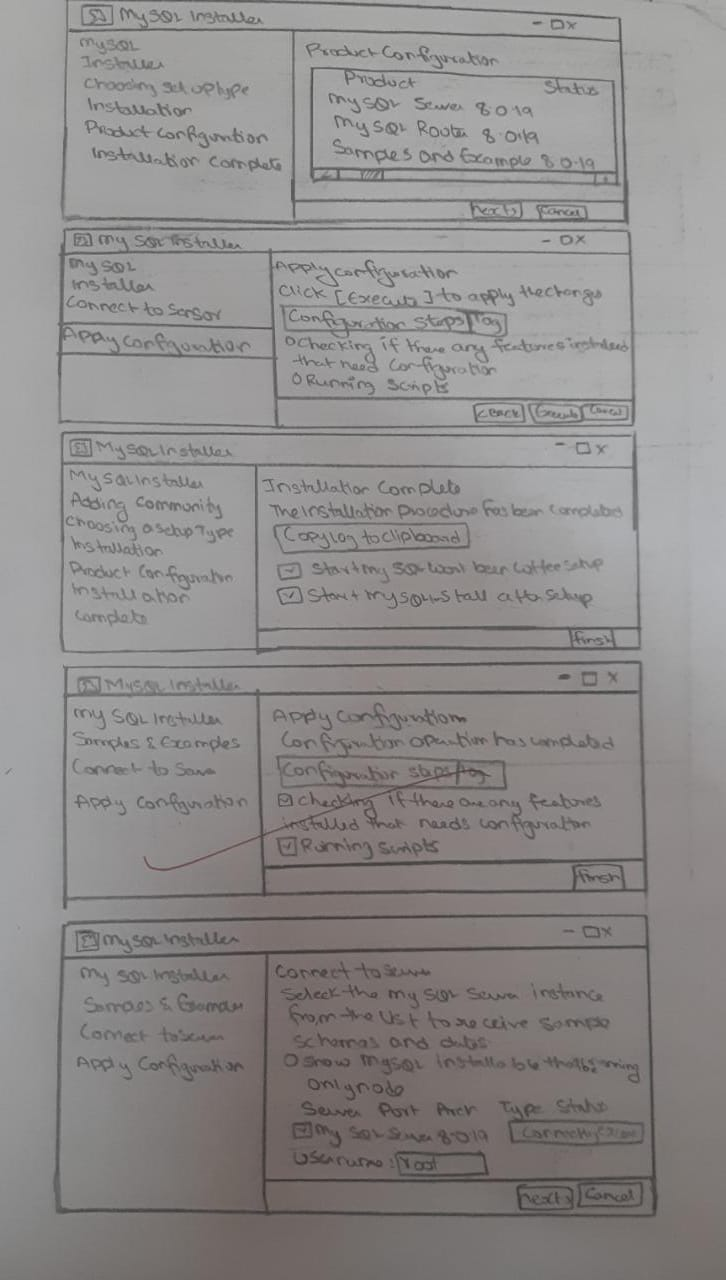 My SQL Installer - □ x
MySQL
Installer
Choosing setuptype
Installation
Product Configuration
Installation complete
Product Configuration
Product Status
MySQL Server 8.0.19
MySQL Router 8.0.19
Samples and Example 8.0.19
Next> Cancel
My SQL Installer - □ x
My SQL
Installer
Connect to
Apply Configuration
Apply configuration
Click [Execute] to apply the changes
Configuration Steps Log
○ Checking if there any features installed
that need configuration
○ Running Scripts
<Back Cancel
MySQL Installer - □ x
MySQL Installer
Adding Community
Choosing a Setup Type
Installation
Product Configuration
Installation
Complete
Installation Complete
The Installation procedure has been completed
Copy log to clipboard
☑ Start My SQL setup
☑ Start MySQL after setup
Finish
MySQL Installer - □ x
My SQL Installer
Samples & Examples
Connect to
Apply Configuration
Apply Configuration
Configuration operation has completed
Configuration steps log
☑ Checking if there are any features
installed that needs configuration
☑ Running scripts
Finish
MySQL Installer - □ x
My SQL Installer
Connect to Server
Apply Configuration
Connect to Server
Select the My SQL Server instance
from the list to receive sample
schemas and
○ Show MySQL
only
Server Port Arch Type Status
☑ My SQL Server 8.0.19
Username: root
Next> Cancel